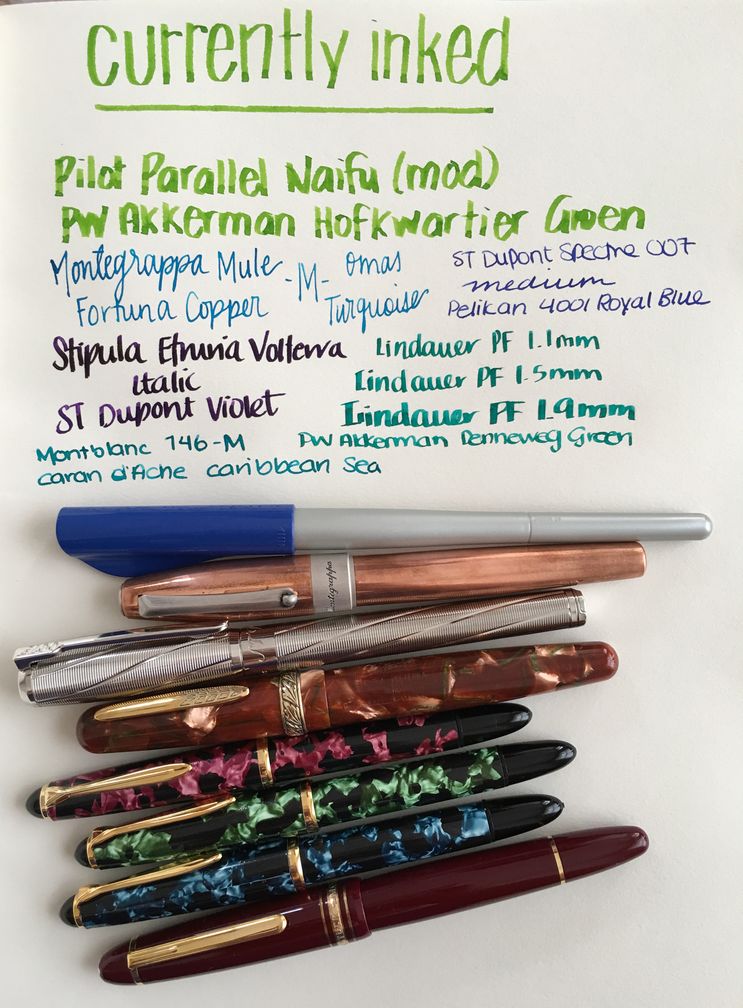 currently inked
Pilot Parallel Naifu (mod)
PW Akkerman Hofkwartier Groen
Montegrappa Mule -M- Omas
Fortuna Copper Turquoise
ST Dupont Spectre 007
medium
Pelikan 4001 Royal Blue
Stipula Etruria Volterra
Italic
ST Dupont Violet
Lindauer PF 1.1mm
Lindauer PF 1.5mm
Lindauer PF 1.9mm
PW Akkerman Denneweg Groen
Montblanc 146-M
Caran d'Ache Caribbean Sea
Montegrappa